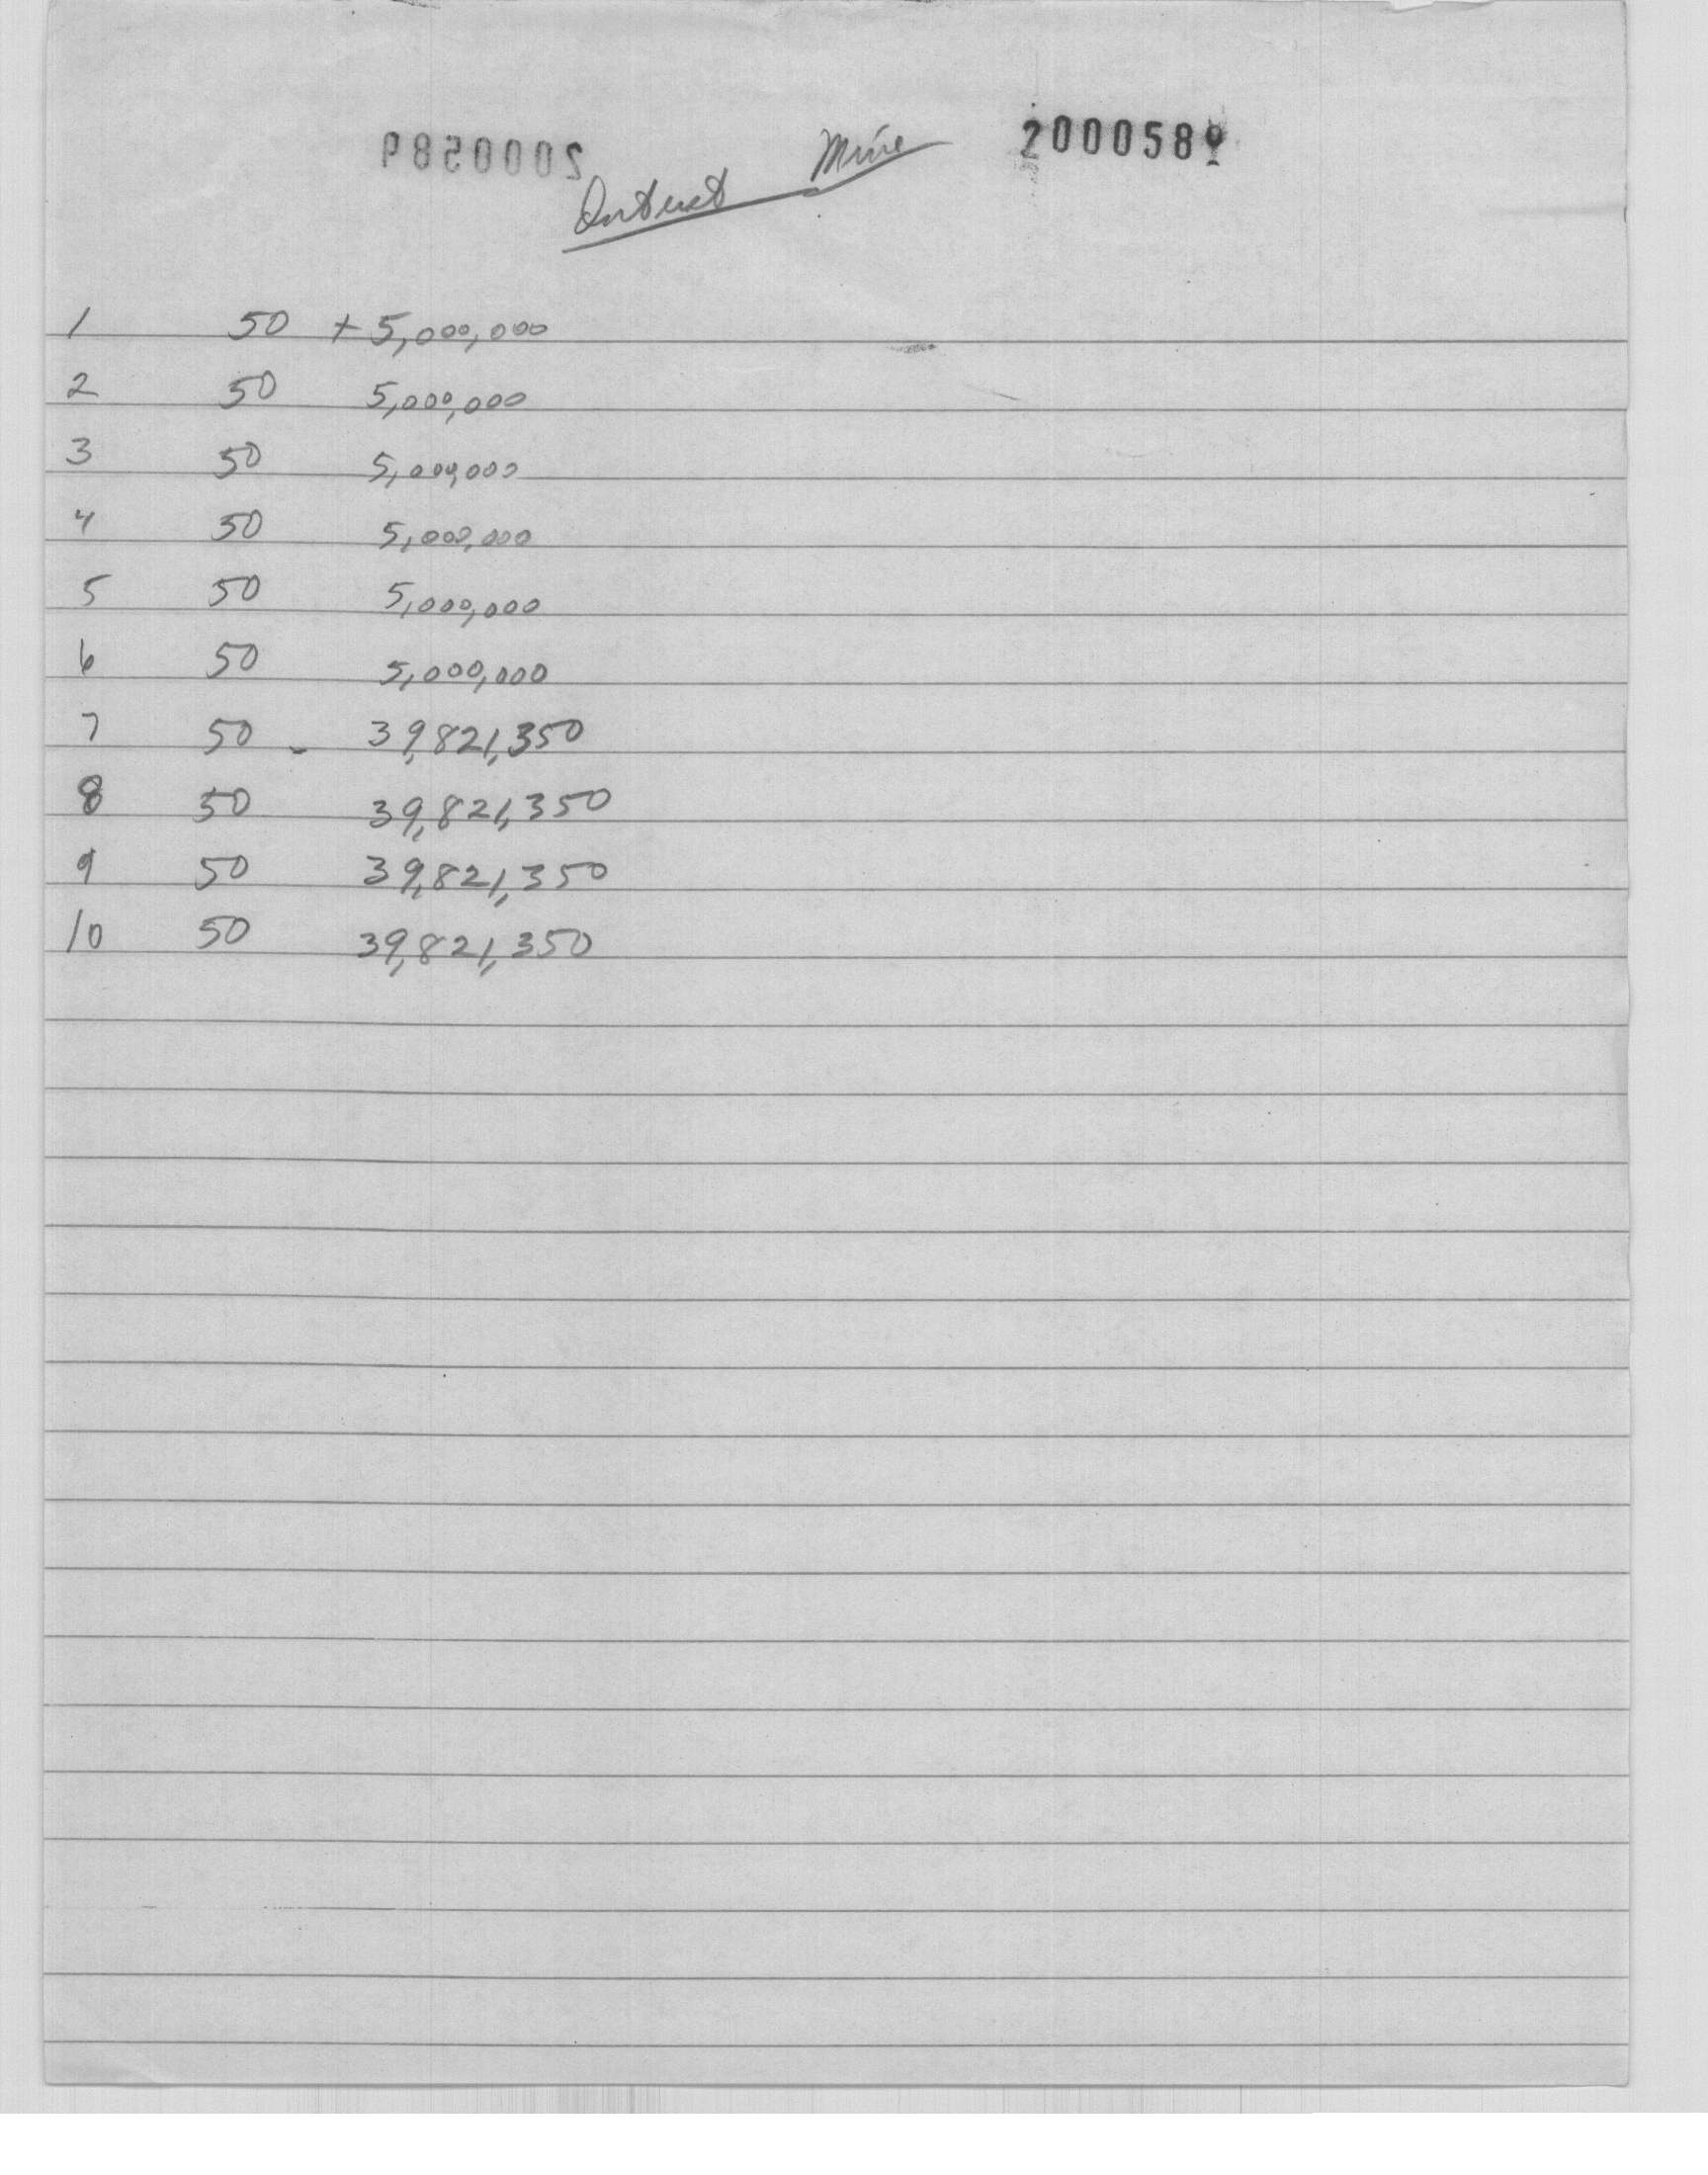 2000589 Mine 2000589
Interest
1 50 + 5,000,000
2 50 5,000,000
3 50 5,000,000
4 50 5,000,000
5 50 5,000,000
6 50 5,000,000
7 50 - 39,821,350
8 50 39,821,350
9 50 39,821,350
10 50 39,821,350